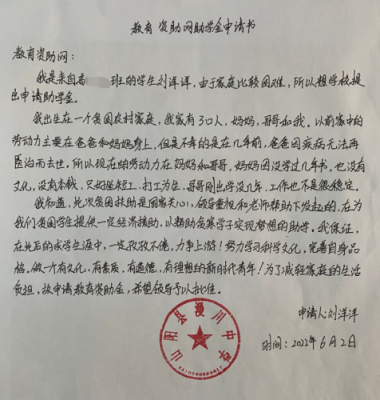 教育资助网助学金申请书
教育资助网：
我是来自 班的学生刘洋洋，由于家庭比较困难，所以想学校提
出申请助学金。
我出生在一个贫困农村家庭，我家有3口人，妈妈，哥哥和我。以前家中的
劳动力主要在爸爸和妈妈身上，但是不幸的是在几年前，爸爸因疾病无法再
医治而去世，所以现在纳劳动力在妈妈和哥哥，妈妈因没学过几年书，也没有
文化，没有本钱，只好坐短工，打工为生，哥哥刚出学没几年，工作也不是很稳定。
我知道，此次贫困救助是国家关心，领导重视和老师帮助下发起的，在为
我们贫困学生提供一定经济援助，以精助贫寒学子实现梦想的助学。我保证，
在此后的求学生涯中，一定孜孜不倦，力争上游！努力学习科学文化，完善自身品
格，做一个有文化，有素质，有道德，有理想的新时代青年！为了减轻家庭的生活
负担，故申请教育资助金，希望领导予以批准。
山阳县漫川中学
申请人：刘洋洋
时间：2022年6月2日